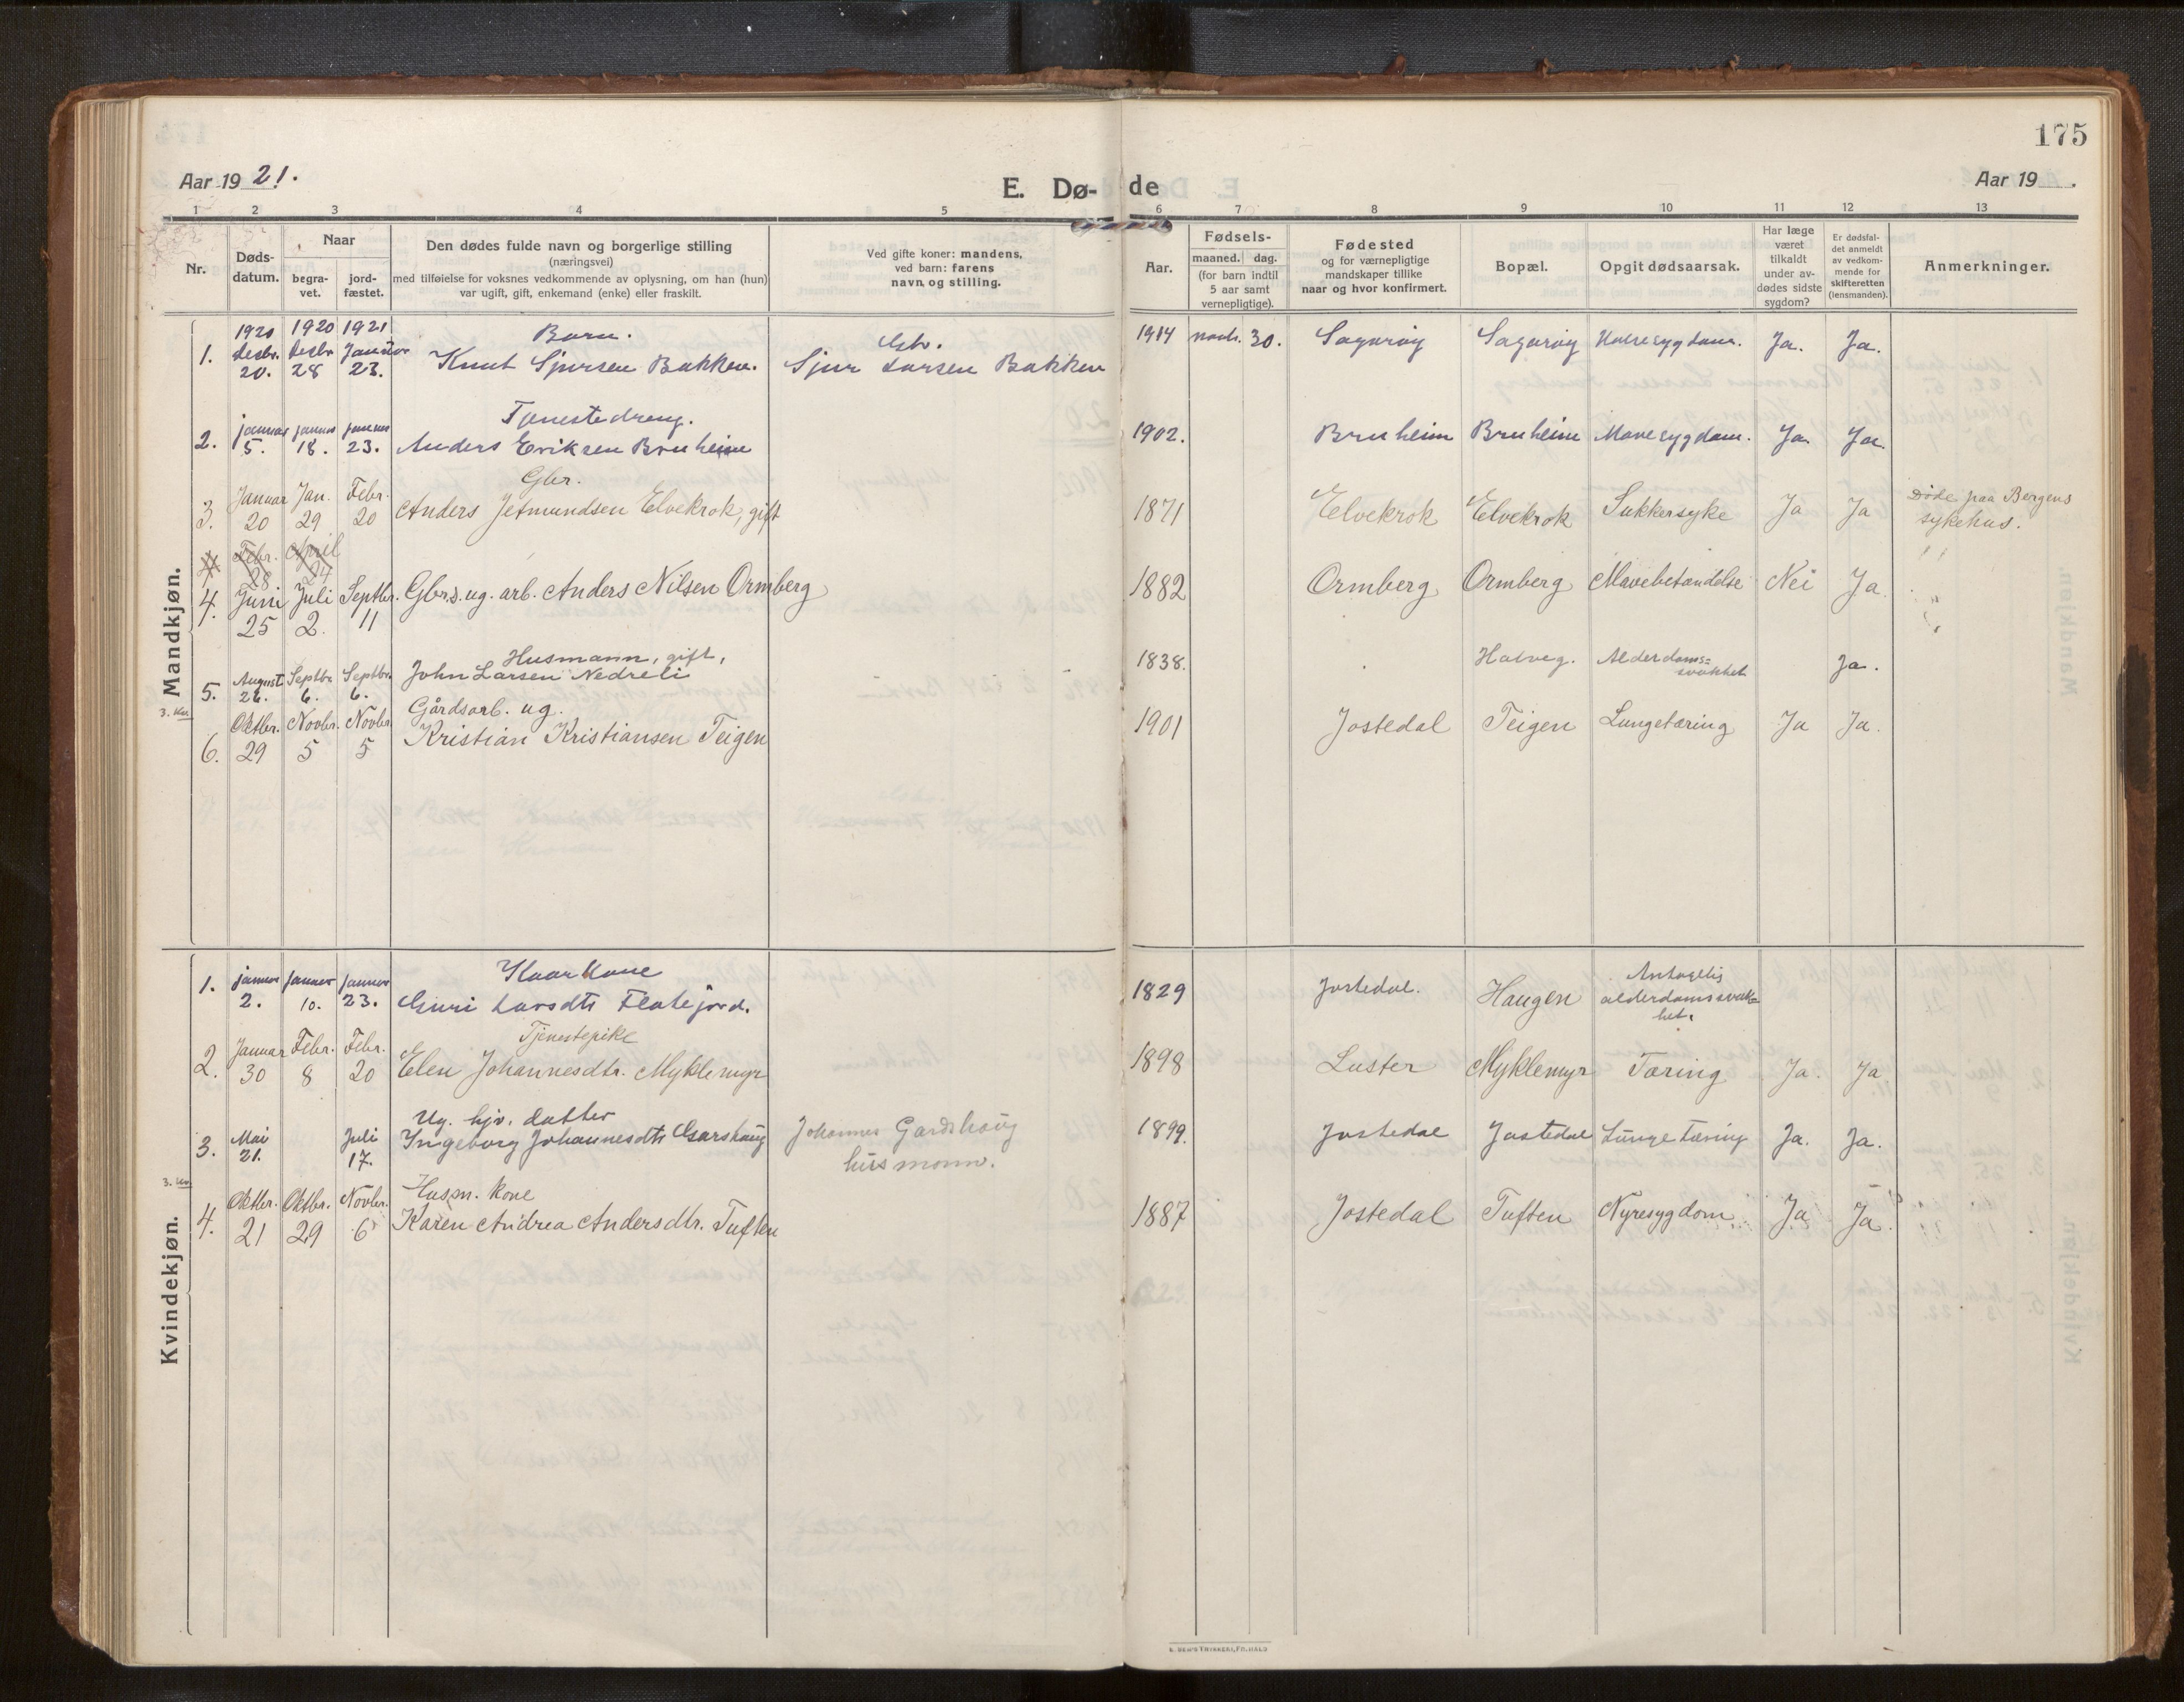 175
Aar 19 21.
E. Dø-
de
Aar 19 .
1 2 3 4 5 6 7 8 9 10 11 12 13
Nr.
Døds-
datum.
Naar
begra-
vet.
jord-
fæstet.
Den dødes fulde navn og borgerlige stilling
(næringsvei)
med tilføielse for voksnes vedkommende av oplysning, om han (hun)
var ugift, gift, enkemand (enke) eller fraskilt.
Ved gifte koner: mandens,
ved barn: farens
navn og stilling.
Aar.
Fødsels-
maaned. dag.
(for barn indtil
5 aar samt
vernepligtige).
Fødested
og for værnepligtige
mandskaper tillike
naar og hvor konfirmert.
Bopæl.
Opgit dødsaarsak.
Har læge
været
tilkaldt
under av-
dødes sidste
sygdom?
Er dødsfal-
det anmeldt
av vedkom-
mende for
skifteretten
(lensmanden).
Anmerkninger.
Mandkjøn.
1920 1920 1921 Barn.
1. Desbr. Desbr Januar Gbr. 1914 novbr. 30. Sagarøy Sagarøy Halsesygdom. Ja. Ja.
20. 28 23. Knut Sjursen Bakken. Sjur Larsen Bakken
Tjenestedreng.
2. januar januar januar 1902. Bruheim Bruheim Mavesygdom. Ja. Ja.
5. 18. 23. Anders Eriksen Bruheim
Gbr.
3. Januar Jan. Febr. Anders Jetmundsen Elvekrok, gift 1871 Elvekrok Elvekrok Sukkersyke Ja Ja Døde paa Bergens
20 29 20 sykehus.
4 Febr. April
28 24
4. Juni Juli Septbr. Gbr.s. ug. arb. Anders Nilsen Ormberg 1882 Ormberg Ormberg Mavebetændelse Nei Ja.
25 2. 11
Husmann, gift,
5. August Septbr Septbr. John Larsen Nedreli 1838. Alderdoms- Ja.
26. 6. 6. svakhet
3. Kv.
Gårdsarb. ug.
6. Oktbr. Novbr. Novbr. Kristian Kristiansen Teigen 1901 Jostedal Teigen Lungetæring Ja Ja.
29 5 5
Kvindekjøn.
Kaarkone
1. januar januar januar 1829 Jostedal. Haugen Antagelig
2. 10. 23. Guri Larsdtr Flatejord. alderdomssvak-
het.
Tjenestepike
2. Januar Febr. Febr. Elen Johannesdtr. Myklemyr 1898 Luster Myklemyr Tæring Ja. Ja
30 8 20
Ug. hjv. datter
3. Mai Juli Ingeborg Johannesdtr Garshaug Johannes Gardshaug 1899. Jostedal Jostedal Lungetæring Ja. Ja.
21. 17. husmann.
3. Kv.
Husm. kone
4. Oktbr. Oktbr. Novbr. Karen Andrea Andersdtr. Tuften 1887 Jostedal Tuften Nyresygdom Ja Ja.
21 29 6